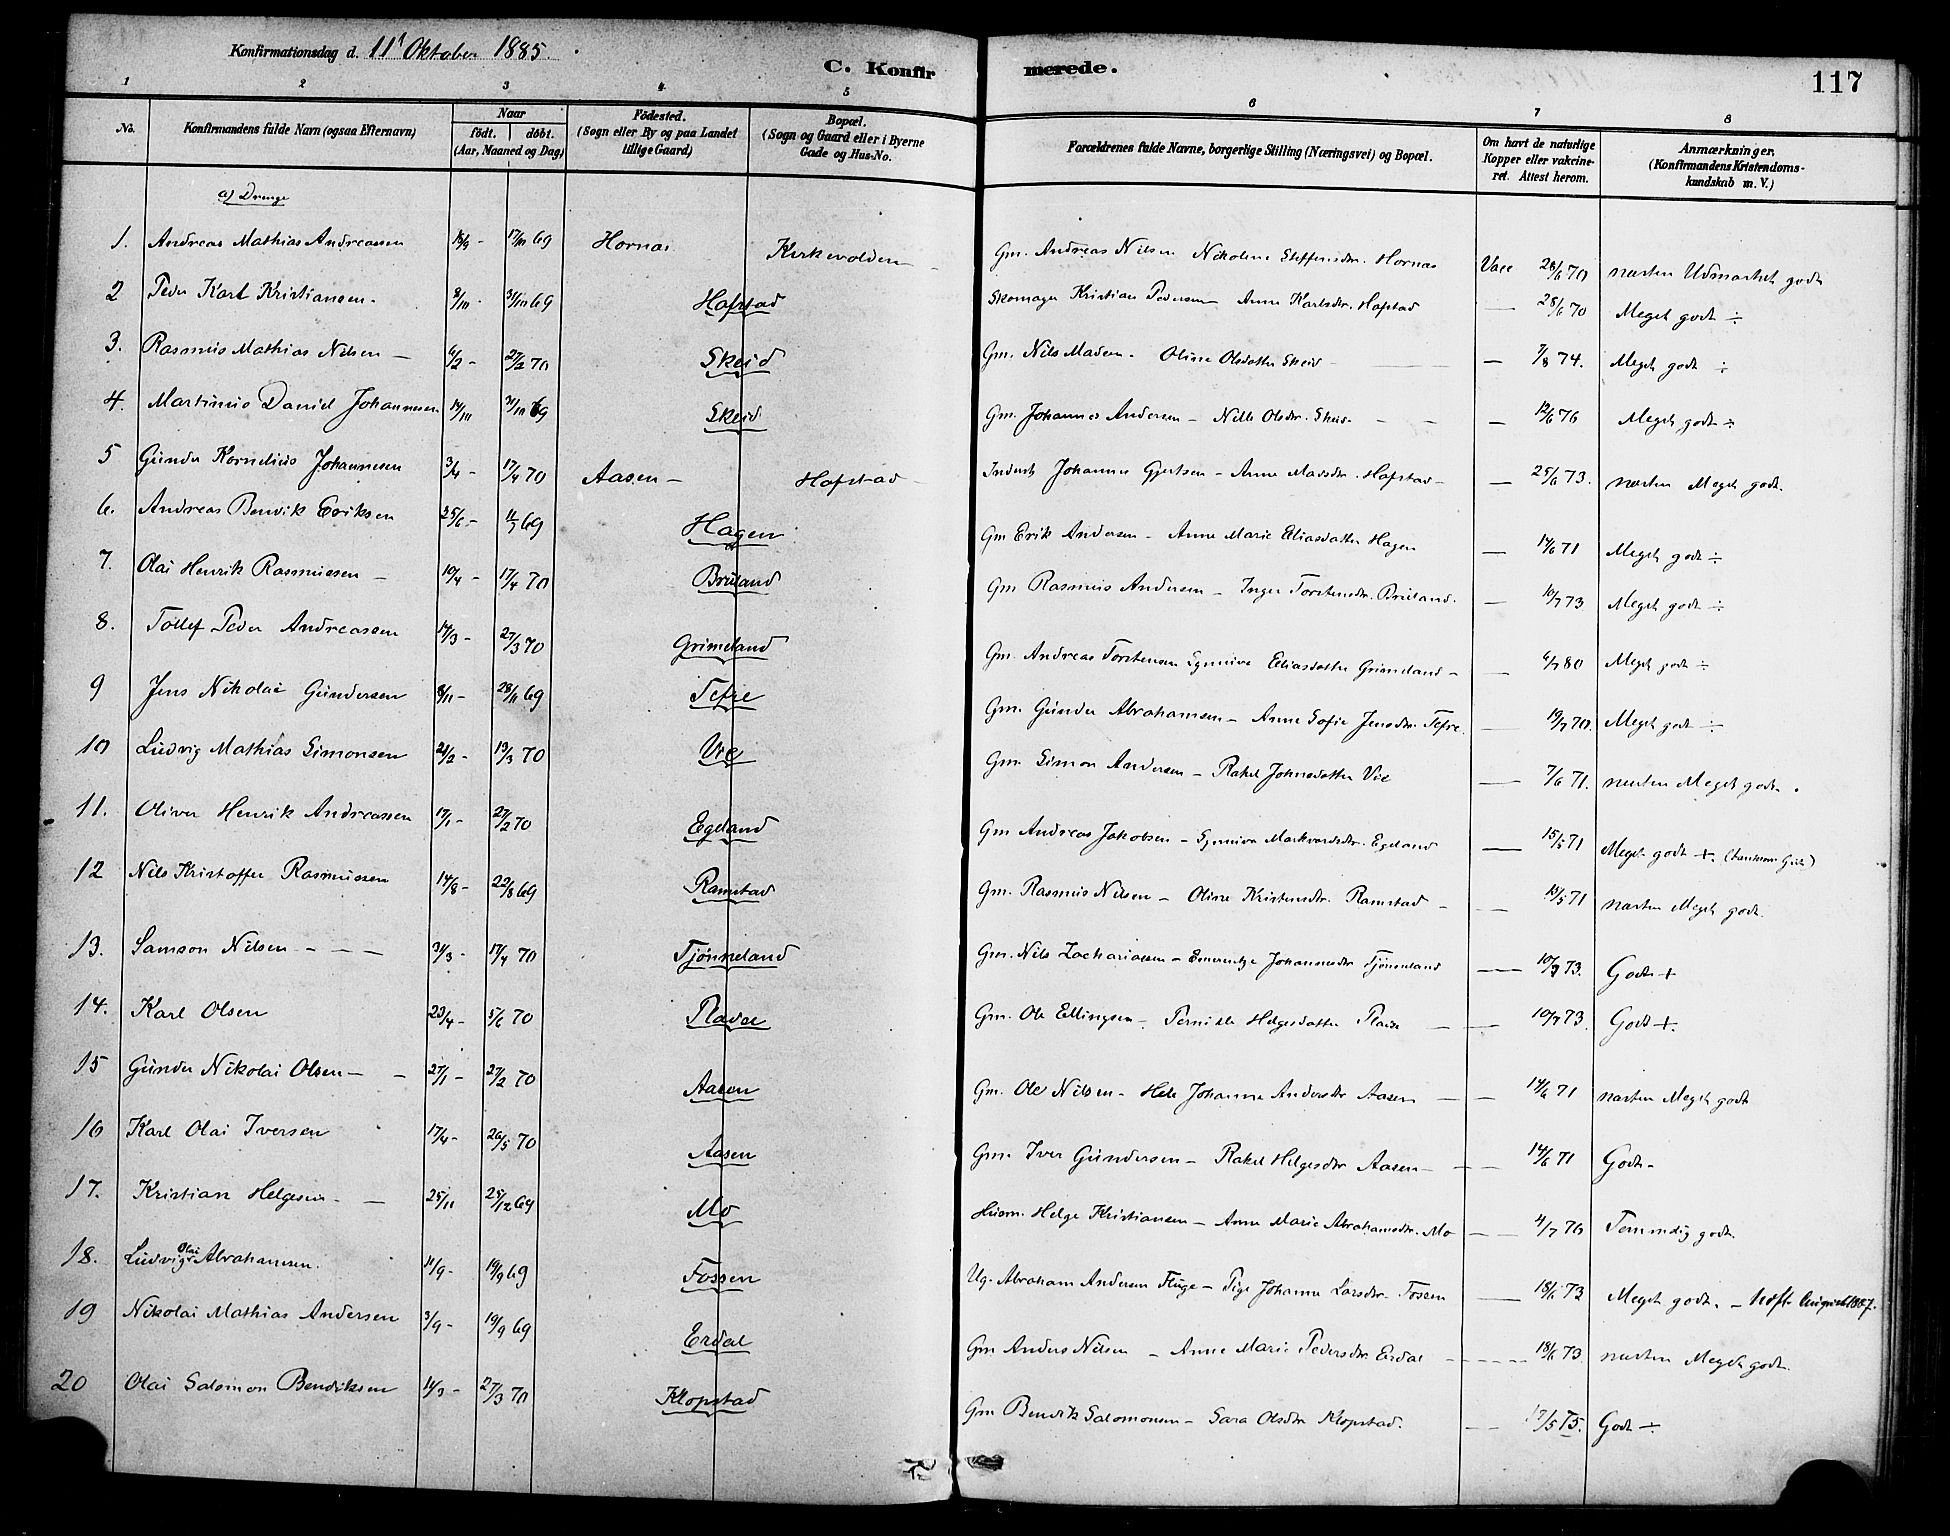 Konfirmationsdag d. 11' Oktober 1885.
C. Konfirmerede.
117
1 2 3 4 5 6 7 8
No.
Konfirmandens fulde Navn (ogsaa Efternavn)
Naar
födt. döbt.
(Aar, Maaned og Dag)
Födested.
(Sogn eller By og paa Landet
tillige Gaard)
Bopæl.
(Sogn og Gaard eller i Byerne
Gade og Hus-No.
Forældrenes fulde Navne, borgerlige Stilling (Næringsvei) og Bopæl.
Om havt de naturlige
Kopper eller vakcine-
ret. Attest herom.
Anmærkninger.
(Konfirmandens Kristendoms-
kundskab m. V.)
a) Drenge
1. Andreas Mathias Andreassen 15/9 - 17/10 69 Hornas Kirkevolden Gm. Andreas Nilsen Nikoline Steffensdtr. Hornas Vacc 28/6 70 næsten Udmærket godt
2 Peder Karl Kristiansen 8/10 - 31/10 69 Hafstad Skomager Kristian Pedersen Anne Karlsdtr. Hafstad — 28/6 70 Meget godt ÷
3. Rasmus Mathias Nilsen — 6/2 - 27/2 70 Skeid Gm. Nils Madsen - Oline Olsdatter Skeid — 7/8 74. Meget godt ÷
4. Martinus Daniel Johannesen 14/10 31/10 69 Skeid Gm. Johannes Andersen - Nille Olsdtr. Skeid — 12/6 76 Meget godt ÷
5 Gunder Kornelius Johannesen 3/4 - 17/4 70 Aasen — Hafstad Inderst Johannes Gjertsen - Anne Madsdtr. Hafstad — 25/6 73. næsten Meget godt.
6. Andreas Bendik Eriksen 25/6 - 11/7 69 Hagen Gm Erik Andersen - Anne Marie Eliasdatter Hagen — 14/6 71 Meget godt ÷
7. Olai Henrik Rasmussen — 10/4 - 17/4 70 Bruland Gm Rasmus Andersen - Inger Torstensdtr. Bruland. — 10/7 73 Meget godt ÷
8. Tollef Peder Andreassen 14/3 - 27/3 70 Grimeland Gm. Andreas Torstensen Synnive Eliasdatter Grimeland — 6/7 80 Meget godt ÷
9 Jens Nikolai Gundersen 8/11 - 28/11 69 Tefre Gm. Gunder Abrahamsen - Anne Sofie Jensdtr. Tefre. — 19/7 70. Meget godt ÷
10 Ludvig Mathias Simonsen 21/2 - 19/3 70 Vie Gm. Simon Andersen - Rakel Johnsdatter Vie — 7/6 71. næsten Meget godt.
11. Oliver Henrik Andreassen 17/1 - 27/2 70 Egeland Gm Andreas Jakobsen - Synnive Markvardsdtr. Egeland — 15/5 71 Meget godt +.
12 Nils Kristoffer Rasmussen 14/8 - 22/8 69 Ramstad Gm. Rasmus Nilsen - Oline Kristensdtr. Ramstad — 15/5 71 næsten Meget godt.
13. Samson Nilsen — 31/3 - 17/4 70 Tjønneland Gm. Nils Zachariassen - Emerentze Johannesdtr Tjønneland — 10/7 73. Godt +
14. Karl Olsen 23/4 - 5/6 70 Gm. Ole Ellingsen - Pernille Helgesdatter — 10/7 73. Godt +.
15 Gunder Nikolai Olsen — 27/1 - 27/2 70 Aasen Gm. Ole Nilsen - Johanne Andersdtr Aasen — 14/6 71 næsten Meget godt
16 Karl Olai Iversen 17/4 - 26/5 70 Aasen Gm. Iver Gundersen - Rakel Helgesdtr Aasen — 14/6 71 Godt -
17. Kristian Helgesen — 25/11 25/12 69 Mo Husm. Helge Kristiansen - Anne Marie Abrahamsdtr. Mo — 4/7 76 Temmelig godt.
18. Ludvig Olai Abrahamsen. 11/9 - 19/9 69 Fossen Ug. Abraham Andersen Fluge - Pige Johanne Larsdtr. Fossen — 18/6 73 Meget godt. - August 1887.
19 Nikolai Mathias Andersen 3/9 - 19/9 69 Erdal Gm Anders Nilsen - Anne Marie Pedersdtr Erdal — 18/6 73 næsten Meget godt.
20 Olai Salomon Bendiksen 14/3 - 27/3 70 Klopstad Gm Bendik Salomonsen - Sara Olsdtr Klopstad. — 17/5 75. Godt ÷